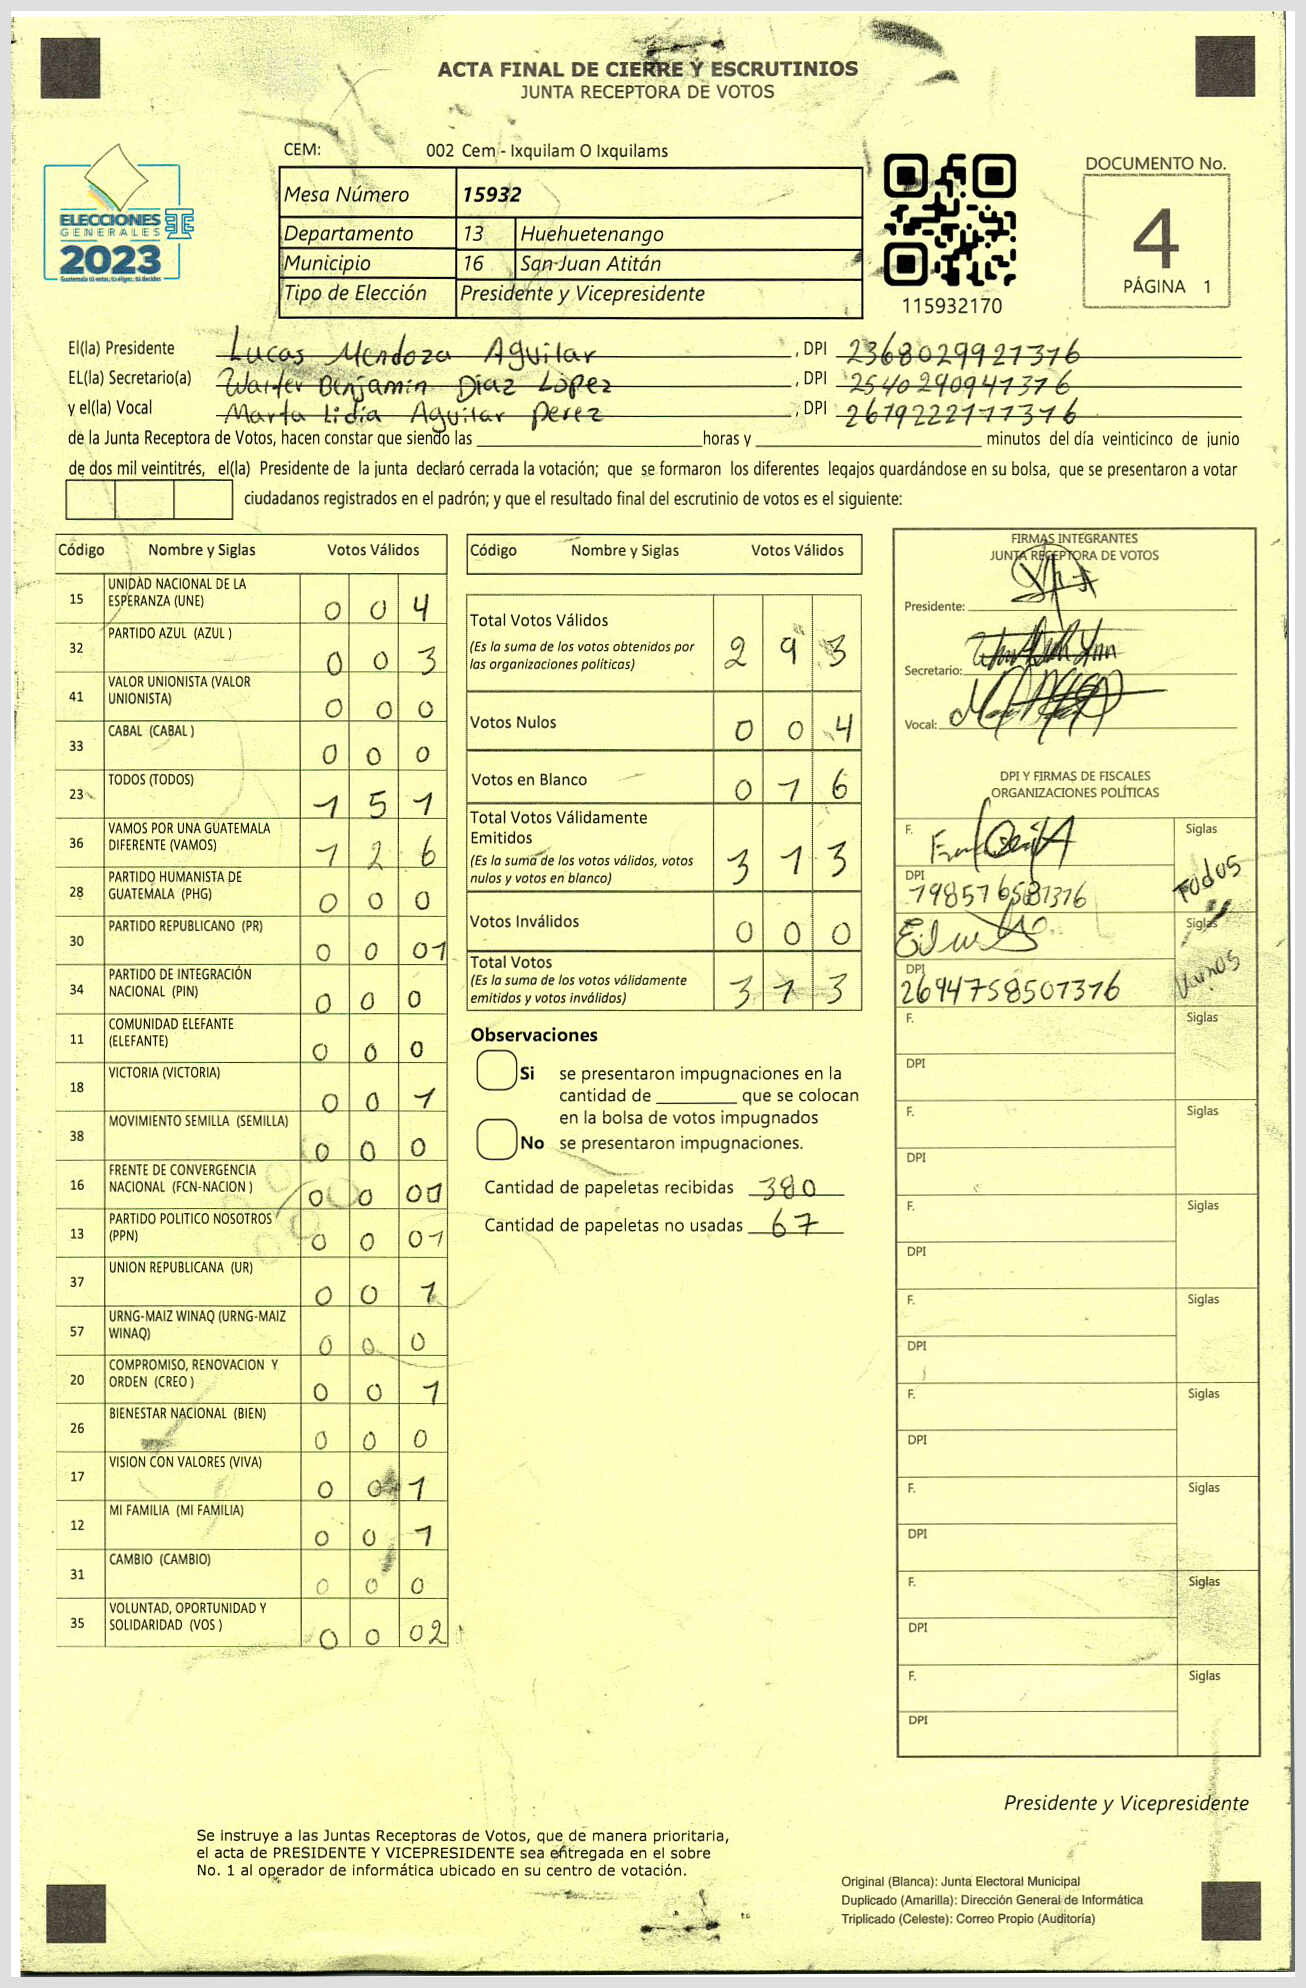 ACTA FINAL DE CIERRE Y ESCRUTINIOS
JUNTA RECEPTORA DE VOTOS
CEM: 002 Cem - Ixquilam O Ixquilams
ELECCIONES
GENERALES
2023
Guatemala tú votas, tú eliges, tú decides
Mesa Número 15932
Departamento 13 Huehuetenango
Municipio 16 San Juan Atitán
Tipo de Elección Presidente y Vicepresidente
115932170
DOCUMENTO No.
4
PÁGINA 1
El(la) Presidente Lucas Mendoza Aguilar, DPI 2368029921376
EL(la) Secretario(a) Walter Benjamin Diaz López, DPI 2540290941376
y el(la) Vocal Marta Lidia Aguilar Perez, DPI 2619222171376
de la Junta Receptora de Votos, hacen constar que siendo las horas y minutos del día veinticinco de junio
de dos mil veintitrés, el(la) Presidente de la junta declaró cerrada la votación; que se formaron los diferentes legajos guardándose en su bolsa, que se presentaron a votar
ciudadanos registrados en el padrón; y que el resultado final del escrutinio de votos es el siguiente:
Código Nombre y Siglas Votos Válidos
15 UNIDAD NACIONAL DE LA ESPERANZA (UNE) 0 0 4
32 PARTIDO AZUL (AZUL ) 0 0 3
41 VALOR UNIONISTA (VALOR UNIONISTA) 0 0 0
33 CABAL (CABAL ) 0 0 0
23 TODOS (TODOS) 1 5 1
36 VAMOS POR UNA GUATEMALA DIFERENTE (VAMOS) 1 2 6
28 PARTIDO HUMANISTA DE GUATEMALA (PHG) 0 0 0
30 PARTIDO REPUBLICANO (PR) 0 0 01
34 PARTIDO DE INTEGRACIÓN NACIONAL (PIN) 0 0 0
11 COMUNIDAD ELEFANTE (ELEFANTE) 0 0 0
18 VICTORIA (VICTORIA) 0 0 1
38 MOVIMIENTO SEMILLA (SEMILLA) 0 0 0
16 FRENTE DE CONVERGENCIA NACIONAL (FCN-NACION ) 0 0
13 PARTIDO POLITICO NOSOTROS (PPN) 0 0 01
37 UNION REPUBLICANA (UR) 0 0 1
57 URNG-MAIZ WINAQ (URNG-MAIZ WINAQ) 0 0 0
20 COMPROMISO, RENOVACION Y ORDEN (CREO ) 0 0 1
26 BIENESTAR NACIONAL (BIEN) 0 0 0
17 VISION CON VALORES (VIVA) 0 0 1
12 MI FAMILIA (MI FAMILIA) 0 0 1
31 CAMBIO (CAMBIO) 0 0 0
35 VOLUNTAD, OPORTUNIDAD Y SOLIDARIDAD (VOS ) 0 0 02
Código Nombre y Siglas Votos Válidos
Total Votos Válidos 2 9 3
(Es la suma de los votos obtenidos por
las organizaciones políticas)
Votos Nulos 0 0 4
Votos en Blanco 0 1 6
Total Votos Válidamente
Emitidos 3 1 3
(Es la suma de los votos válidos, votos
nulos y votos en blanco)
Votos Inválidos 0 0 0
Total Votos 3 1 3
(Es la suma de los votos válidamente
emitidos y votos inválidos)
Observaciones
Si se presentaron impugnaciones en la
cantidad de que se colocan
en la bolsa de votos impugnados
No se presentaron impugnaciones.
Cantidad de papeletas recibidas 380
Cantidad de papeletas no usadas 67
FIRMAS INTEGRANTES
JUNTA RECEPTORA DE VOTOS
Presidente:
Secretario:
Vocal:
DPI Y FIRMAS DE FISCALES
ORGANIZACIONES POLÍTICAS
F. Siglas
DPI TODOS
F. Siglas
DPI Vamos
2694758501376
F. Siglas
DPI
F. Siglas
DPI
F. Siglas
DPI
F. Siglas
DPI
F. Siglas
DPI
F. Siglas
DPI
F. Siglas
DPI
F. Siglas
DPI
Presidente y Vicepresidente
Se instruye a las Juntas Receptoras de Votos, que de manera prioritaria,
el acta de PRESIDENTE Y VICEPRESIDENTE sea entregada en el sobre
No. 1 al operador de informática ubicado en su centro de votación.
Original (Blanca): Junta Electoral Municipal
Duplicado (Amarilla): Dirección General de Informática
Triplicado (Celeste): Correo Propio (Auditoría)